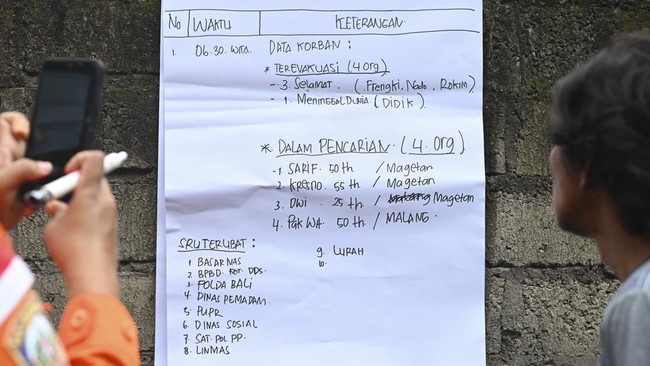 No WAKTU KETERANGAN
1. 06.30. WITA. DATA KORBAN :
* TEREVAKUASI (4 org)
- 3. SELAMAT. (Frengki, Nado, Rokim)
- 1. MENINGGAL DUNIA. (DIDIK)
* DALAM PENCARIAN. (4. org)
- 1. SARIF. 50 th / Magetan
- 2. Kresno. 55 th / Magetan
3. DWI . 25 th / Magetan
4. PAK WA. 50 th / MALANG.
SRU TERLIBAT :
1 BASARNAS
2 BPBD. KOT. DPS.
3 POLDA BALI
4 DINAS PEMADAM
5 PUPR
6 DINAS SOSIAL
7 SAT. POL PP.
8. LINMAS
9. LURAH
10.